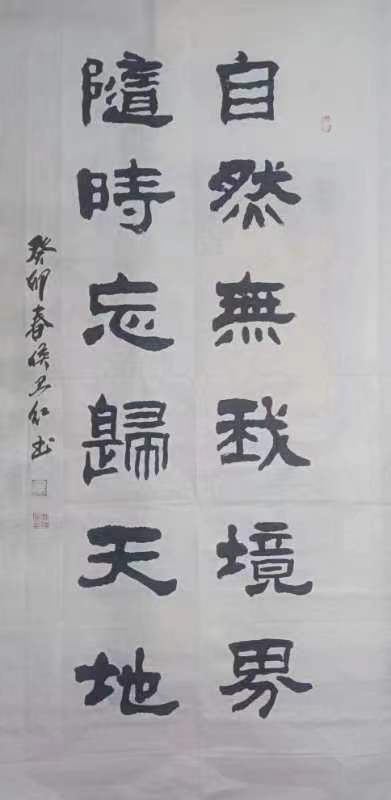 自然無我境界
隨時忘歸天地
癸卯春侯卫红书